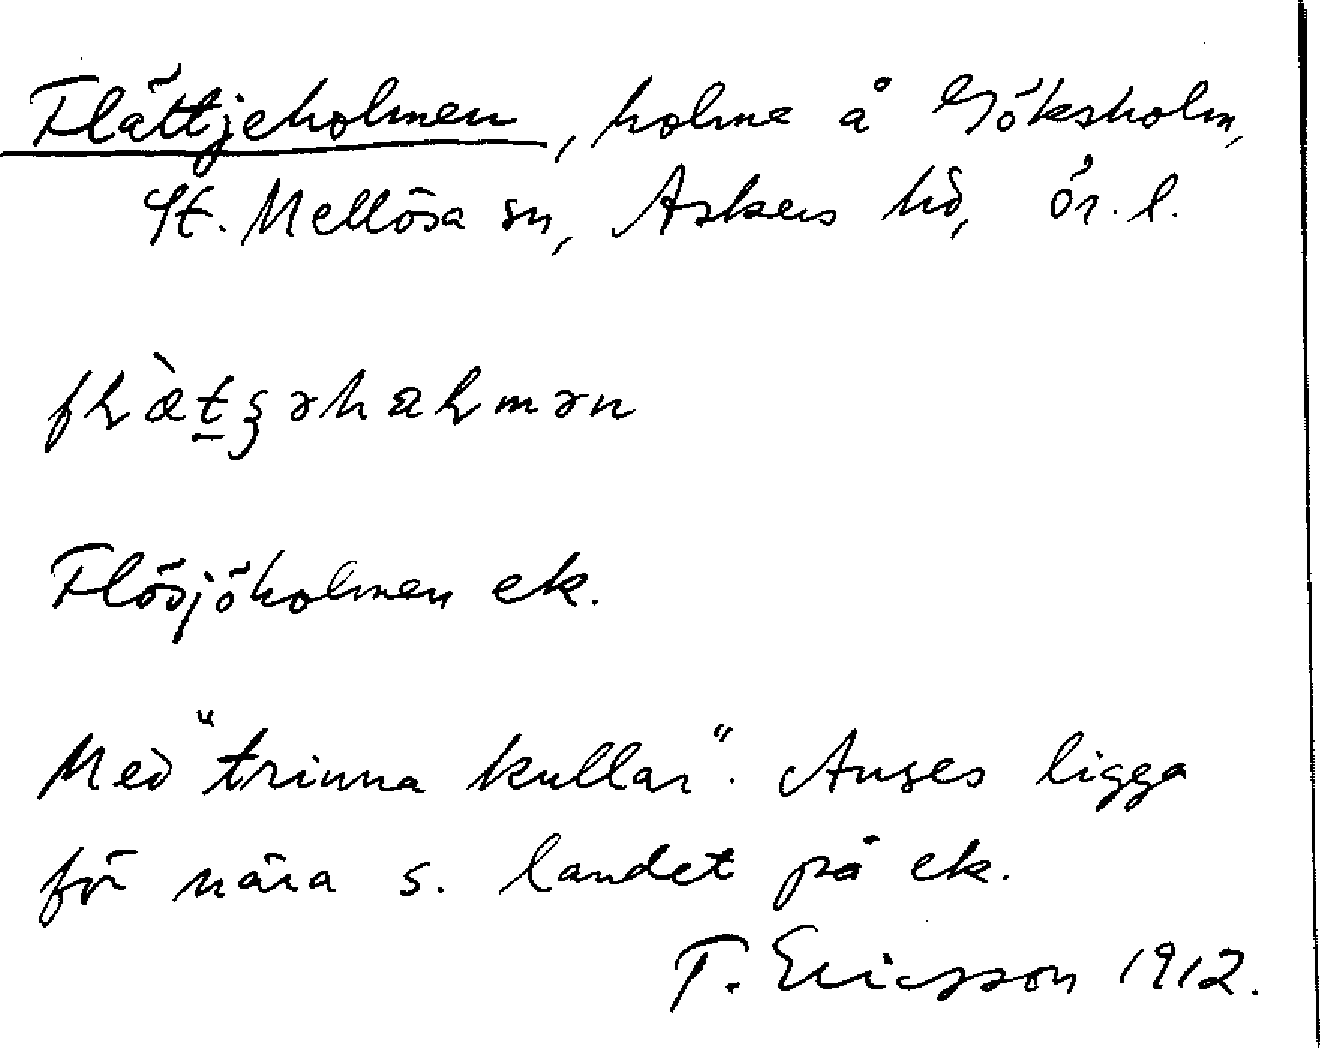 Flättjeholmen, holme å Göksholm,
St. Mellösa sn, Askers hd, ör. l.
Flösjöholmen ek.
Med "trinna kullar". Anges ligga
för nära s. landet på ek.
T. Ericsson 1912.